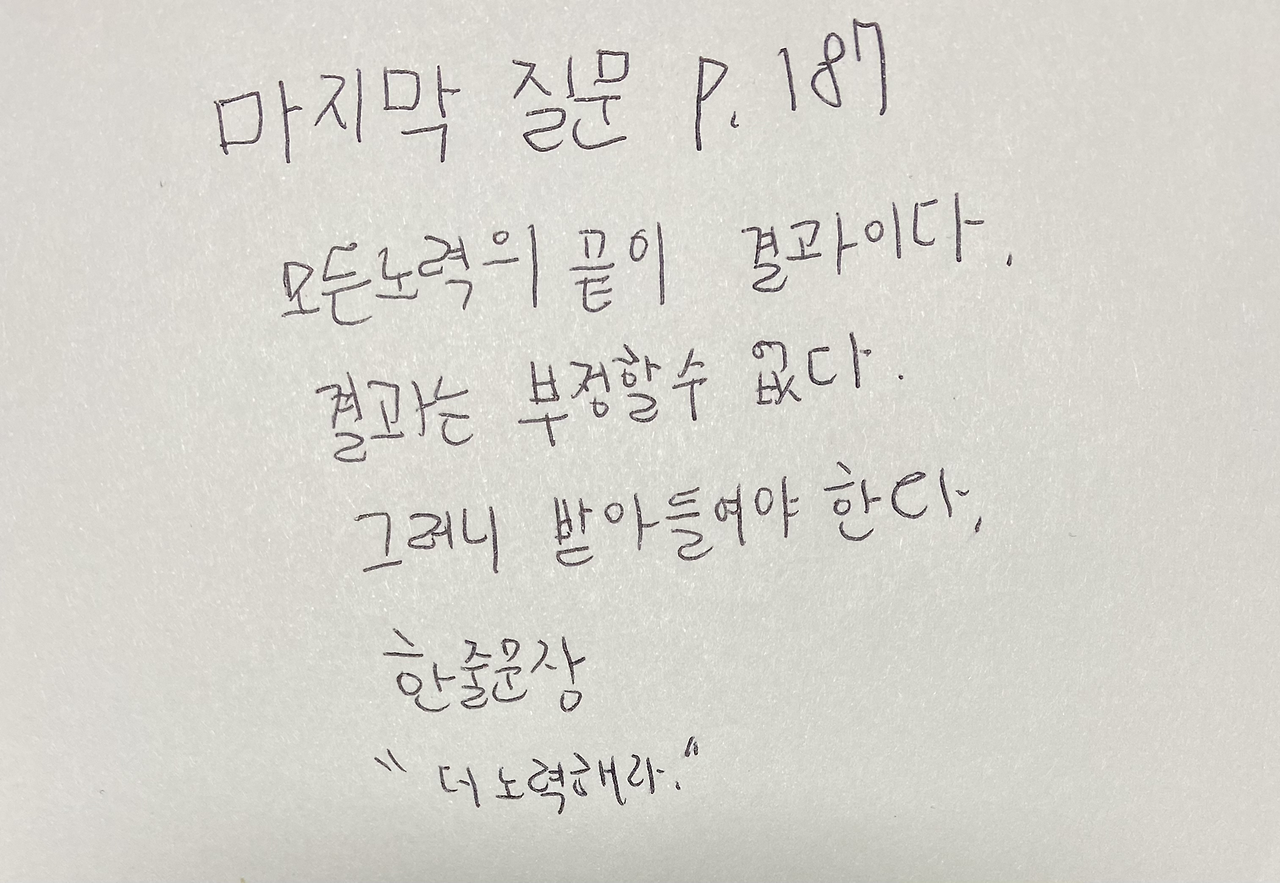 마지막 질문 P. 187
모든노력의 끝이 결과이다.
결과는 부정할수 없다.
그러니 받아들여야 한다.
한줄문장
"더 노력해라."